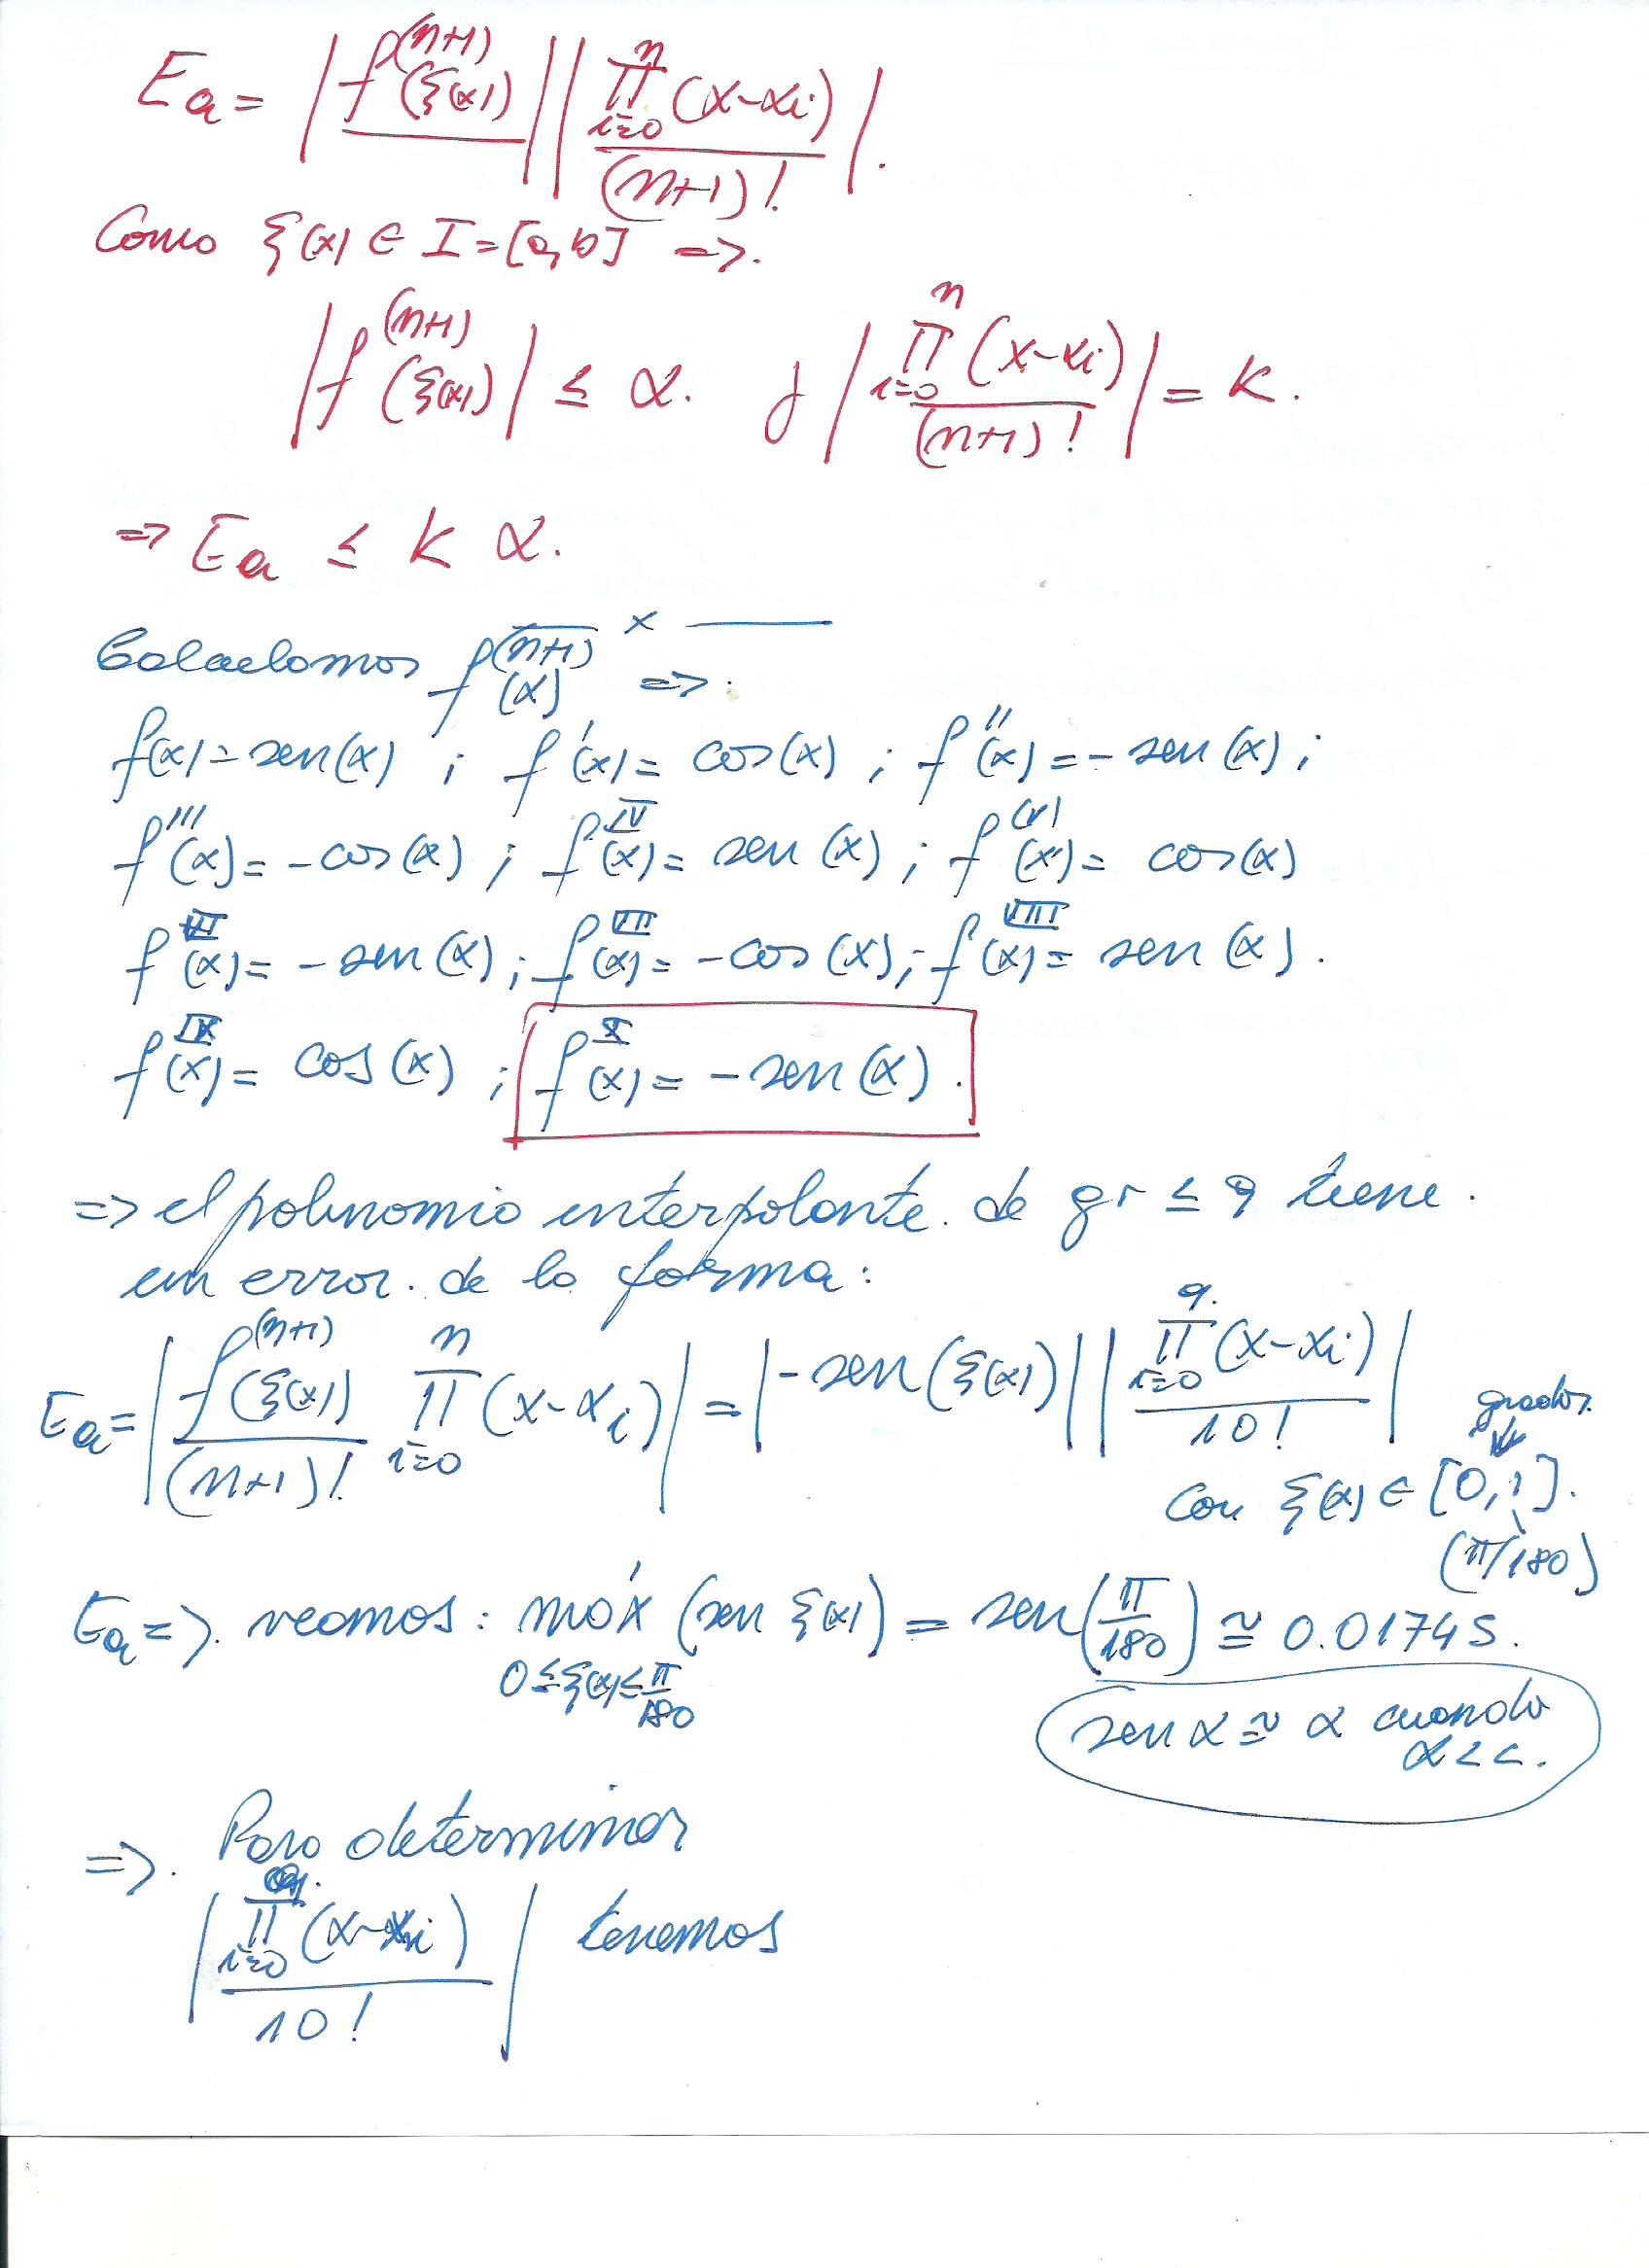 Ea = | f^(n+1)(ξ(x)) | | ∏_{i=0}^{n} (x-xi) / (n+1)! |.
Como ξ(x) ∈ I = [a,b] =>.
| f^(n+1)(ξ(x)) | ≤ α. y | ∏_{i=0}^{n} (x-xi) / (n+1)! | = K.
=> Ea ≤ K α.
x
Calculamos f^(n+1)(x) =>.
f(x) = sen(x) ; f'(x) = cos(x) ; f''(x) = - sen(x) ;
f'''(x) = - cos(x) ; f^IV(x) = sen(x) ; f^(V)(x) = cos(x)
f^VI(x) = - sen(x) ; f^VII(x) = - cos(x) ; f^VIII(x) = sen(x).
f^IX(x) = cos(x) ; f^X(x) = - sen(x).
=> el polinomio interpolante. de gr ≤ 9 tiene.
un error. de la forma:
Ea = | f^(n+1)(ξ(x)) / (n+1)! ∏_{i=0}^{n} (x-xi) | = | -sen(ξ(x)) | | ∏_{i=0}^{9.} (x-xi) / 10! |
grados.
Con ξ(x) ∈ [0,1].
(π/180)
Ea =>. veamos: máx_{0≤ξ(x)≤π/180} (sen ξ(x)) = sen(π/180) ≅ 0.01745.
sen α ≅ α cuando
α <<.
=>. Para determinar
| ∏_{i=0}^{9.} (x-xi) / 10! | tenemos